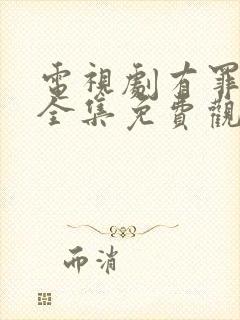 電視劇有罪
全集免費觀
而消